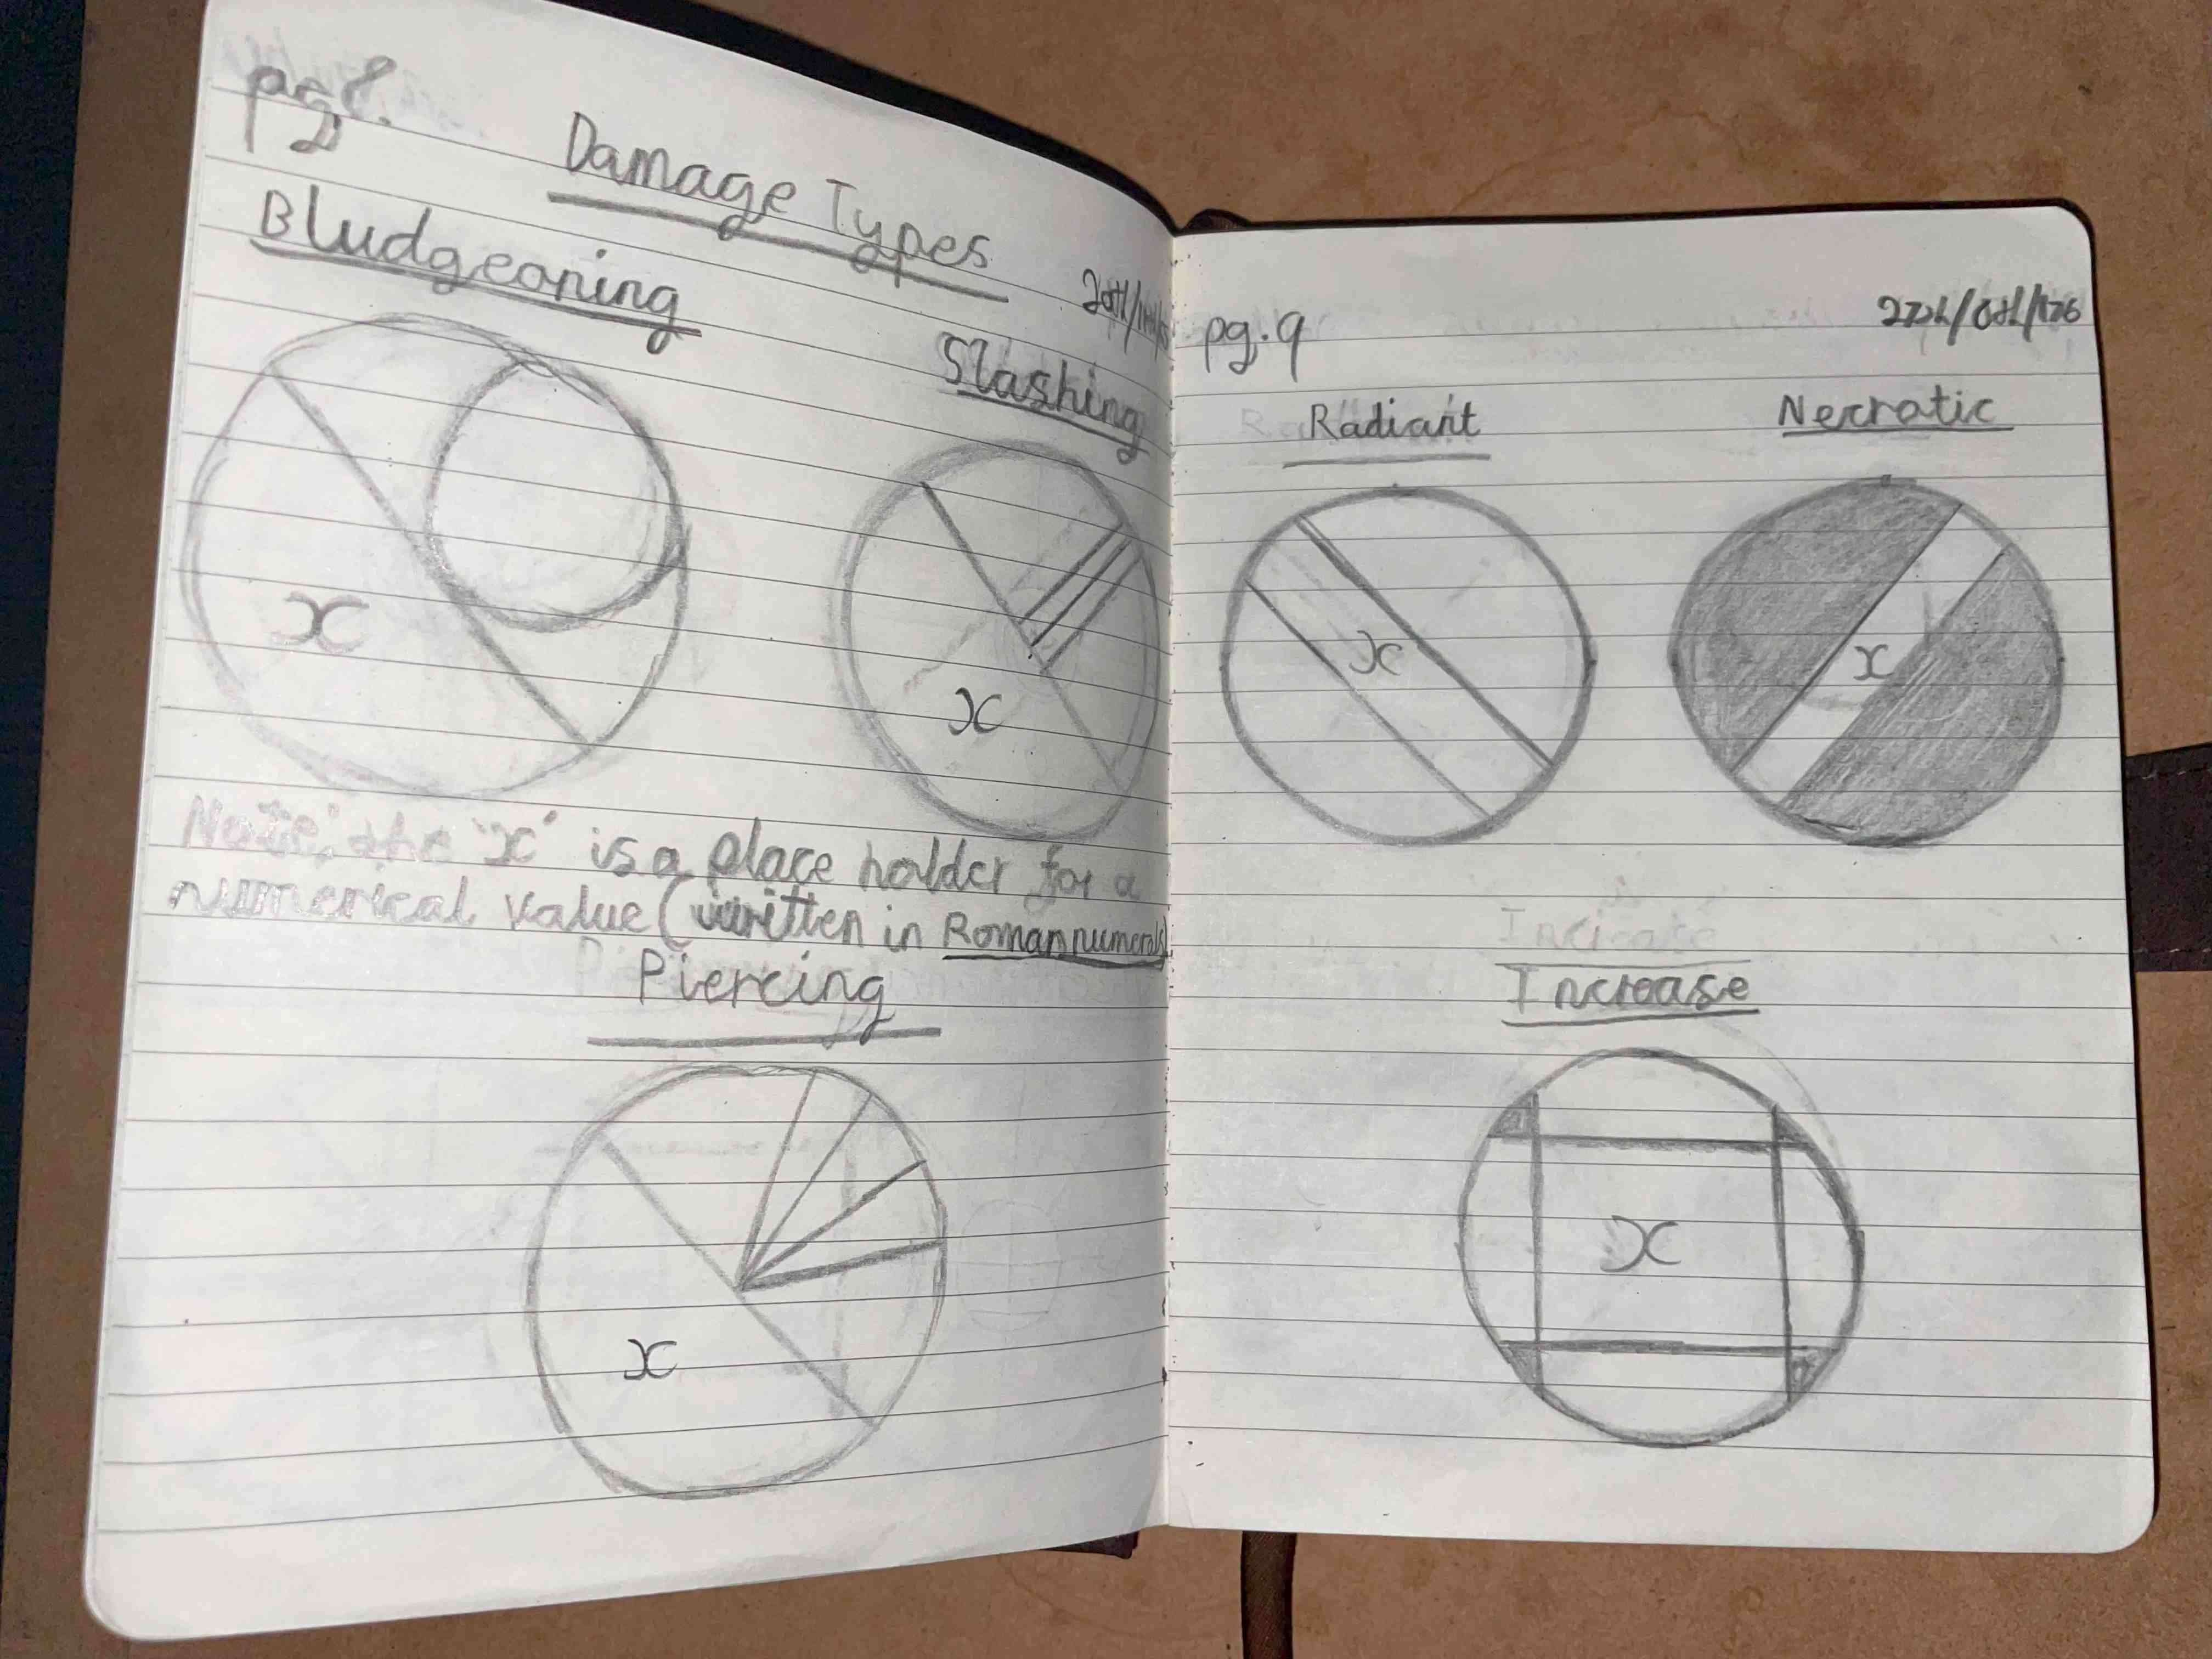 pg 8.
Damage Types
Bludgeoning
Slashing
x
x
Note: the "x" is a place holder for a
numerical value (written in Roman numerals)
Piercing
x
pg.9
Radiant
Necrotic
x
x
Increase
x